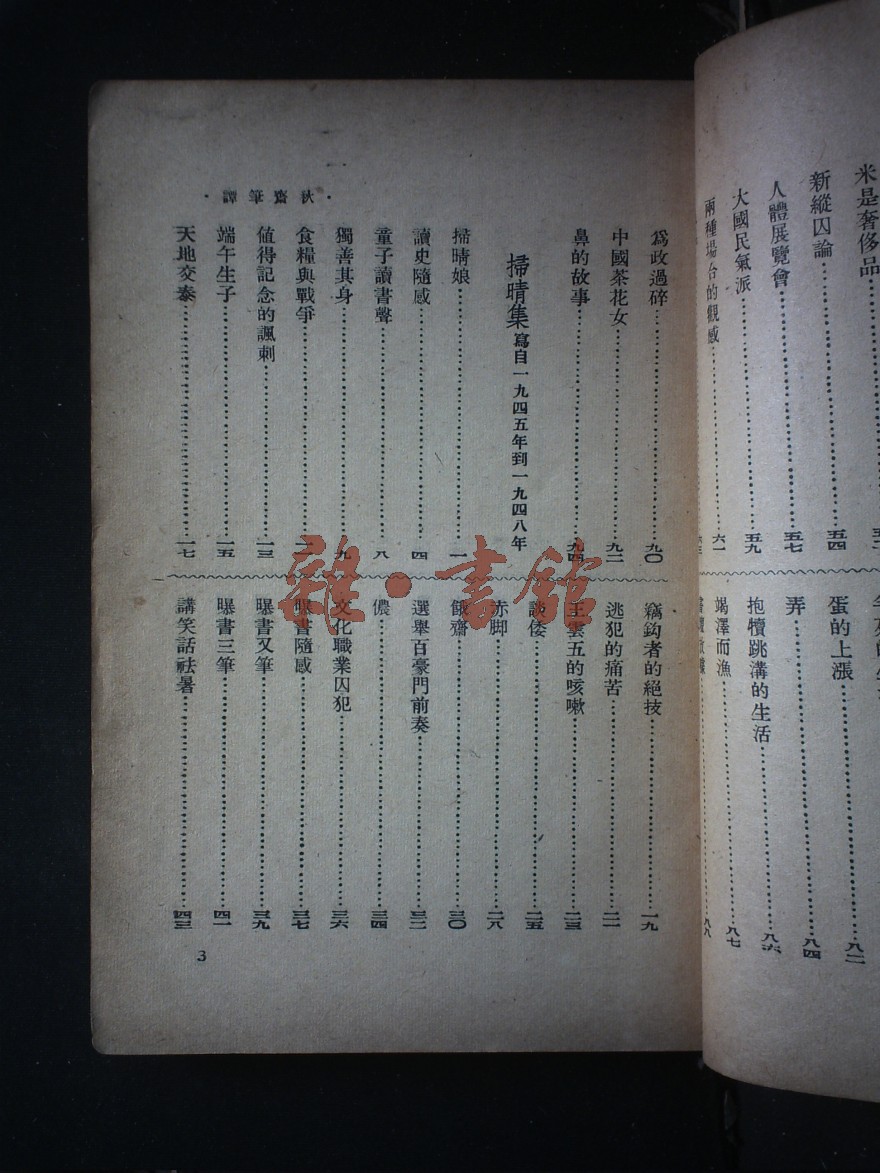 米是奢侈品
新縱囚論……五四
人體展覽會……五七
大國民氣派……五九
兩種場台的觀感……六一
蛋的上漲……八二
弄……八四
抱犢跳溝的生活……八六
竭澤而漁……八七
八八
·秋齋筆譚·
爲政過碎……九〇
中國茶花女……九二
鼻的故事……九四
掃晴集 寫自一九四五年到一九四八年
掃晴娘……一
讀史隨感……四
童子讀書聲……八
獨善其身……九
食糧與戰爭……一一
值得記念的諷刺……一三
端午生子……一五
天地交泰……一七
竊鈎者的絕技……一九
逃犯的痛苦……二一
王雲五的咳嗽……二三
談倭……二五
赤脚……二八
餓齋……三〇
選舉百豪門前奏……三二
儂……三四
文化職業囚犯……三六
曝書隨感……三七
曝書又筆……三九
曝書三筆……四一
講笑話祛暑……四三
3
雜·書館